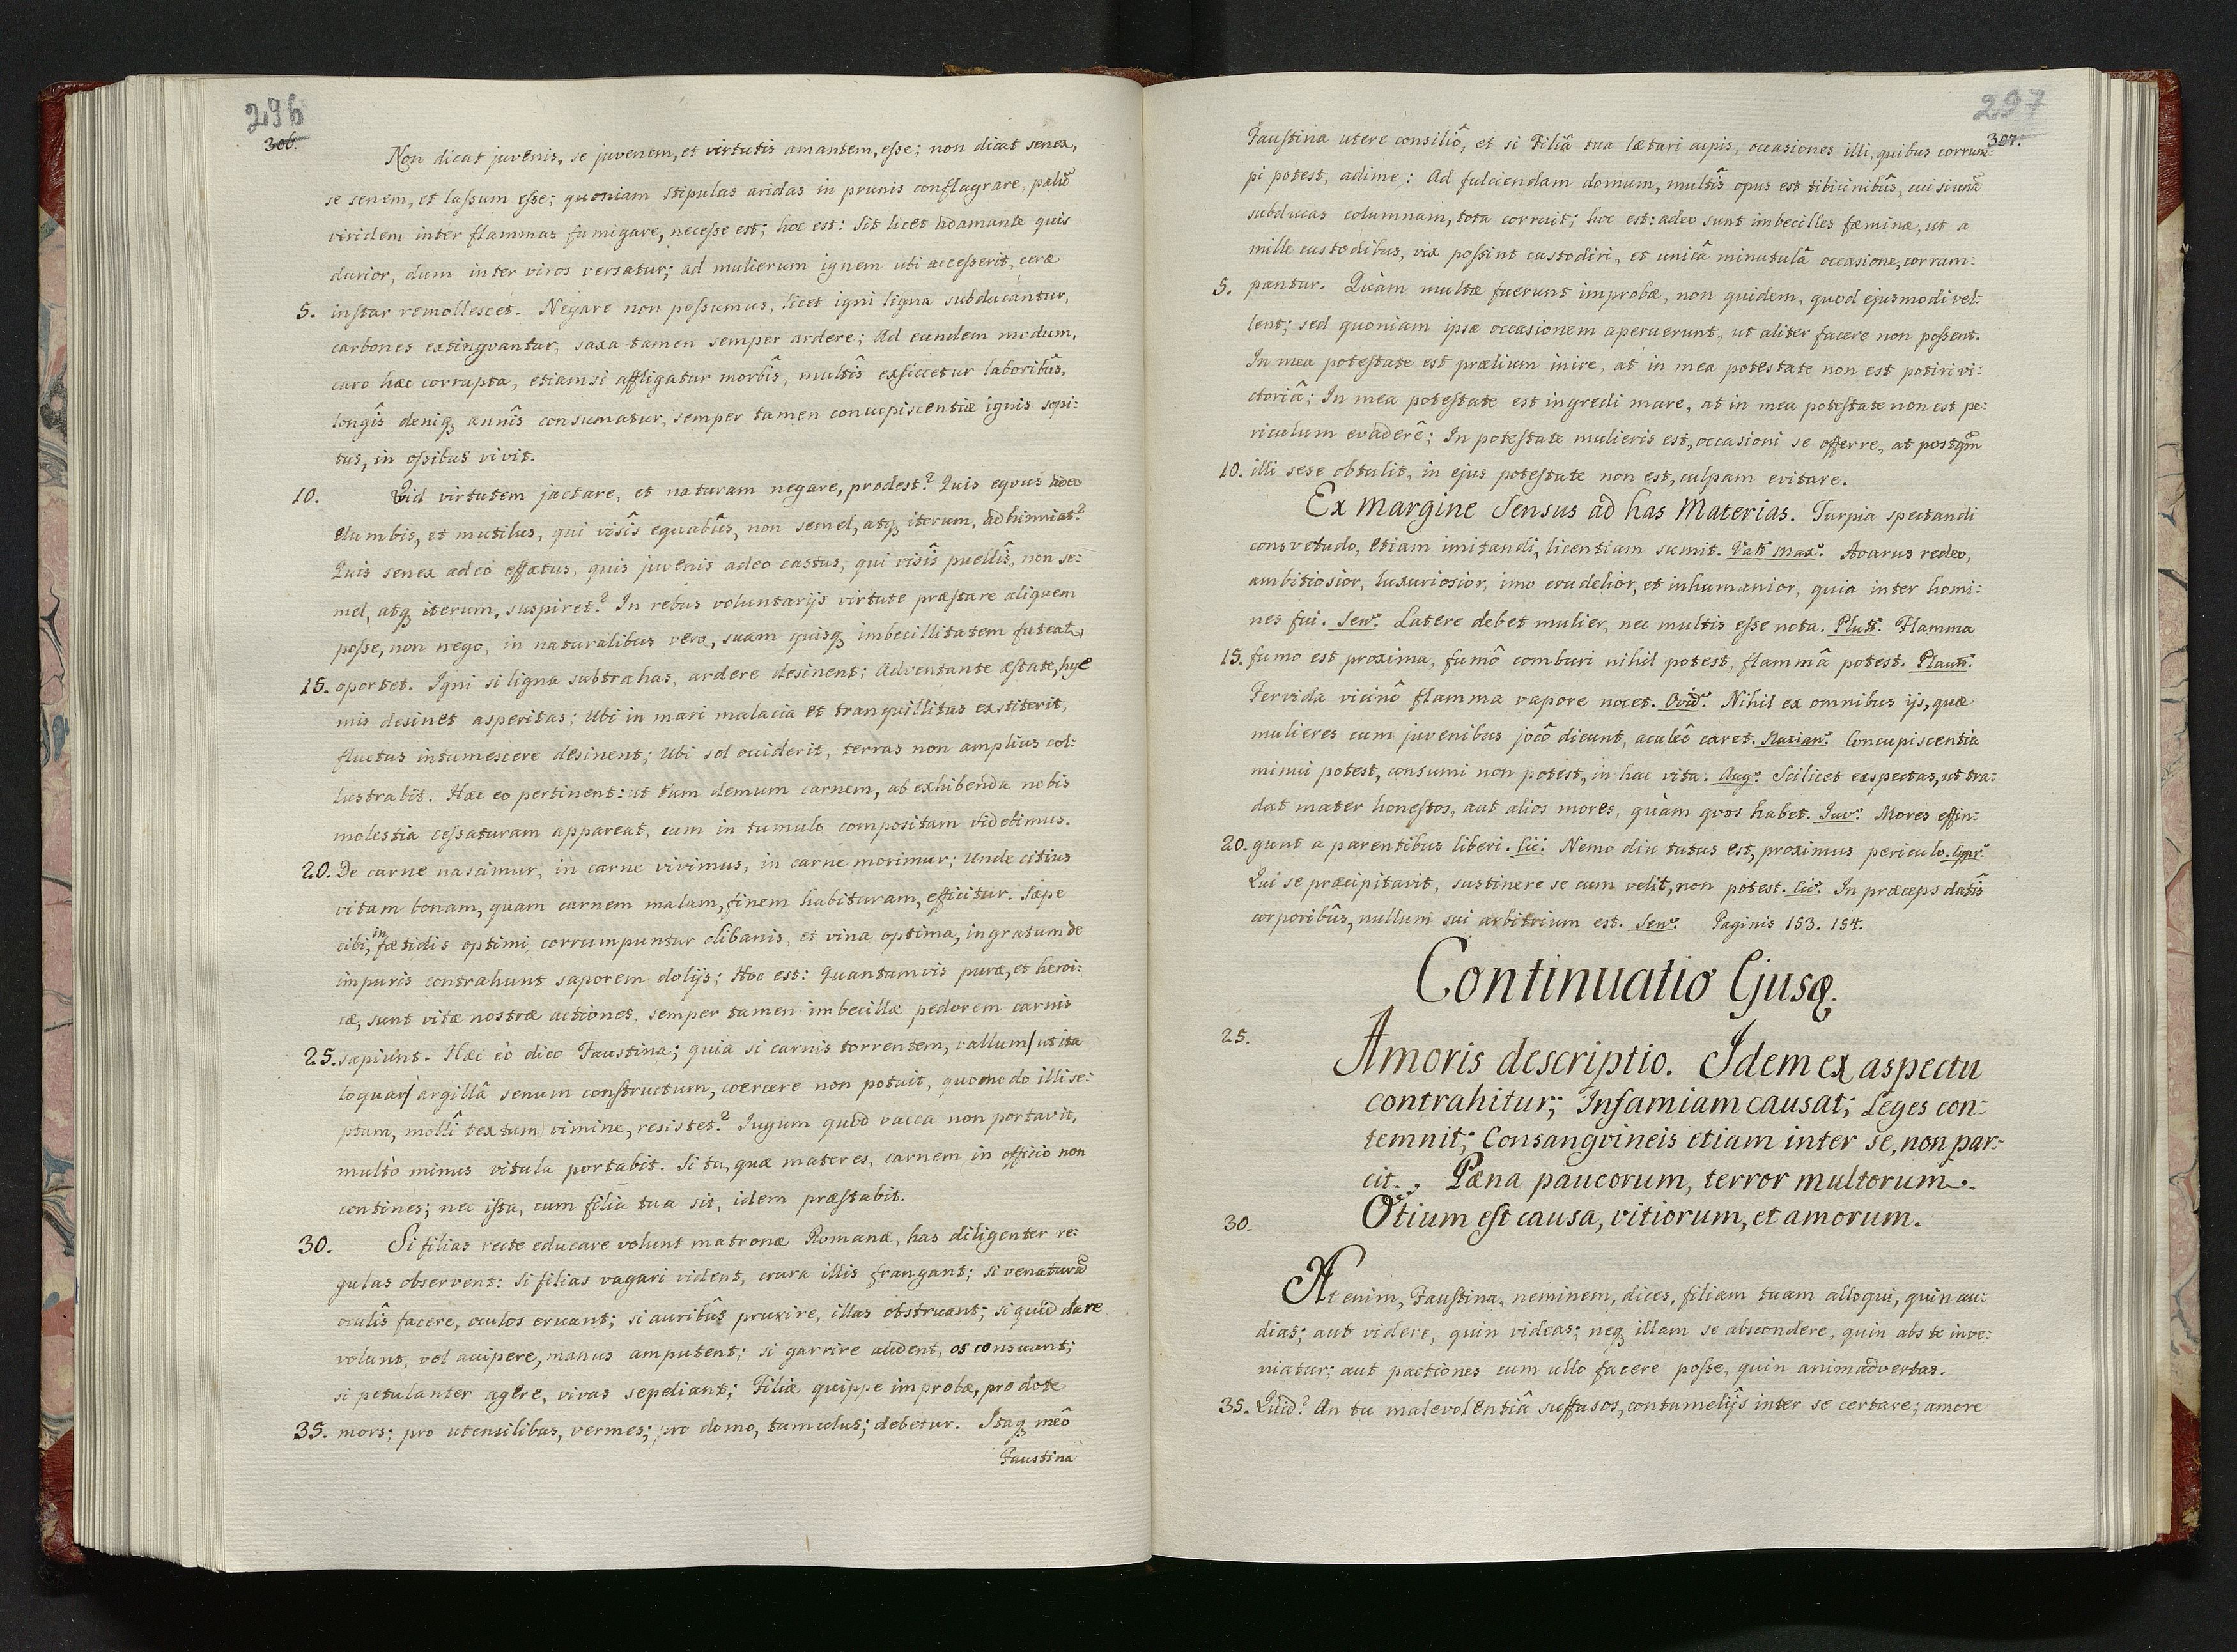 296
306.
Non dicat juvenis, se juvenem, et virtutis amantem, esse; non dicat senex,
se senem, et lassum esse; quoniam stipulas aridas in prunis conflagrare, palū
viridem inter flammas fumigare, necesse est; hoc est: Sit licet adamante quis
durior, dum inter viros versatur; ad mulierum ignem ubi accesserit, ceræ
5. instar remollescet. Negare non possumus, licet igni ligna subducantur,
carbones extingvantur, saxa tamen semper ardere; Ad eundem modum,
caro hæc corrupta, etiamsi affligatur morbîs, multîs exsiccetur laboribûs,
longîs deniq; annîs consumatur, semper tamen concupiscentiæ ignis sopi:
tus, in ossibus vivit.
10. Qvid virtutem jactare, et naturam negare, prodest? Quis eqvus adeo
elumbis, et mutilus, qui visîs equabûs, non semel, atq; iterum, adhinniat?
Quis senex adeò effætus, quis juvenis adeo castus, qui visîs puellîs, non se:
mel, atq; iterum, suspiret? In rebus voluntarijs virtute præstare aliquem
posse, non nego, in naturalibus vero, suam quisq; imbecillitatem fateat,
15. oportet. Igni si ligna subtrahas, ardere desinent; Adventante æstate, hye
mis desinet asperitas; Ubi in mari malacia et tranquillitas exstiterit,
fluctus intumescere desinent; Ubi sol occiderit, terras non amplius col:
lustrabit. Hæc eo pertinent: ut tum demum carnem, ab exhibenda nobis
molestia cessaturam appareat, cum in tumulo compositam videbimus.
20. De carne nascimur, in carne vivimus, in carne morimur; Unde citius
vitam bonam, quam carnem malam, finem habituram, efficitur. Sæpe
cibi, in fætidis optimi corrumpuntur clibanis, et vina optima, ingratum de
impuris contrahunt saporem dolijs; Hoc est: Quantumvis puræ, et heroi:
cæ, sunt vitæ nostræ actiones, semper tamen imbecillæ pedorem carnis
25. sapiunt. Hæc eò dico Faustina; quia si carnis torrentem, vallum/ ut ita
loquar/ argillâ senum constructum, coercere non potuit, quomodo illi se:
ptum, mollî textum vimine, resistet? Jugum quod vacca non portavit,
multò minus vitula portabit. Si tu, quæ mater es, carnem in officio non
contines; nec ista, cum filia tua sit, idem præstabit.
30. Si filias recte educare volunt matronæ Romanæ, has diligenter re:
gulas observent: si filias vagari vident, crura illis frangant; si venaturā
oculîs facere, oculos eruant; si auribûs prurire, illas obstruant; si quid dare
volunt, vel accipere, manus amputent; si garrire audent, os consuant;
si petulanter agere, vivas sepeliant; Filiæ quippe improbæ, pro dote
35. mors; pro utensilibus, vermes; pro domo, tumulus; debetur. Itaq; meô
Faustina
297
307.
Faustina utere consiliô, et si Filiâ tua lætari cupis, occasiones illi, quibus corrum:
pi potest, adime: Ad fulciendam domum, multîs opus est tibicinibûs, cui si unā
subducas columnam, tota corruit; hoc est: adeo sunt imbecilles fæminæ, ut a
mille custodibus, vix possint custodiri, et unicâ minutulâ occasione, corrum:
5. pantur. Quàm multæ fuerunt improbæ, non quidem, quod ejusmodi vel:
lent; sed quoniam ipsæ occasionem aperuerunt, ut aliter facere non possent.
In mea potestate est prælium inire, at in mea potestate non est potiri vi:
ctoriâ; In mea potestate est ingredi mare, at in mea potestate non est pe:
riculum evaderê; In potestate mulieris est, occasioni se offerre, at postqm̄
10. illi sese obtulit, in ejus potestate non est, culpam evitare.
Ex Margine Sensus ad has Materias. Turpia spectandi
consvetudo, etiam imitandi, licentiam sumit. Valr Max: Avarus redeo,
ambitiosior, luxuriosior, imo crudelior, et inhumanior, quia inter homi:
nes fui. Sen: Latere debet mulier, nec multis esse nota. Plutr: Flamma
15. fumo est proxima, fumô comburi nihil potest, flammâ potest. Plaut:
Fervida vicinô flamma vapore nocet. Ovid: Nihil ex omnibus ijs, quæ
mulieres cum juvenibus jocô dicunt, aculeô caret. Nazian: Concupiscentia
minui potest, consumi non potest, in hac vita. Aug: Scilicet exspectas, ut tra:
dat mater honestos, aut alios mores, quàm qvos habet. Juv: Mores effin:
20. gunt a parentibus liberi. Cic: Nemo diu tutus est, proximus periculo. Cypr:
Qui se præcipitavit, sustinere se cum velit, non potest. Cic: In præceps datîs
corporibûs, nullum sui arbitrium est. Sen: Paginis 153. 154.
Continuatio Ejusq.
25. Amoris descriptio. Idem ex aspectu
contrahitur; Infamiam causat; Leges con:
temnit; Consangvineis etiam inter se, non par:
cit.; Pæna paucorum, terror multorum.
30. Otium est causa, vitiorum, et amorum.
At enim, Faustina, neminem, dices, filiam tuam alloqui, quin au:
dias; aut videre, quin videas; neq; illam se abscondere, quin abs te inve:
niatur; aut pactiones cum ullo facere posse, quin animadvertas.
35. Quid? An tu malevolentiâ suffusos, contumelijs inter se certare; amore